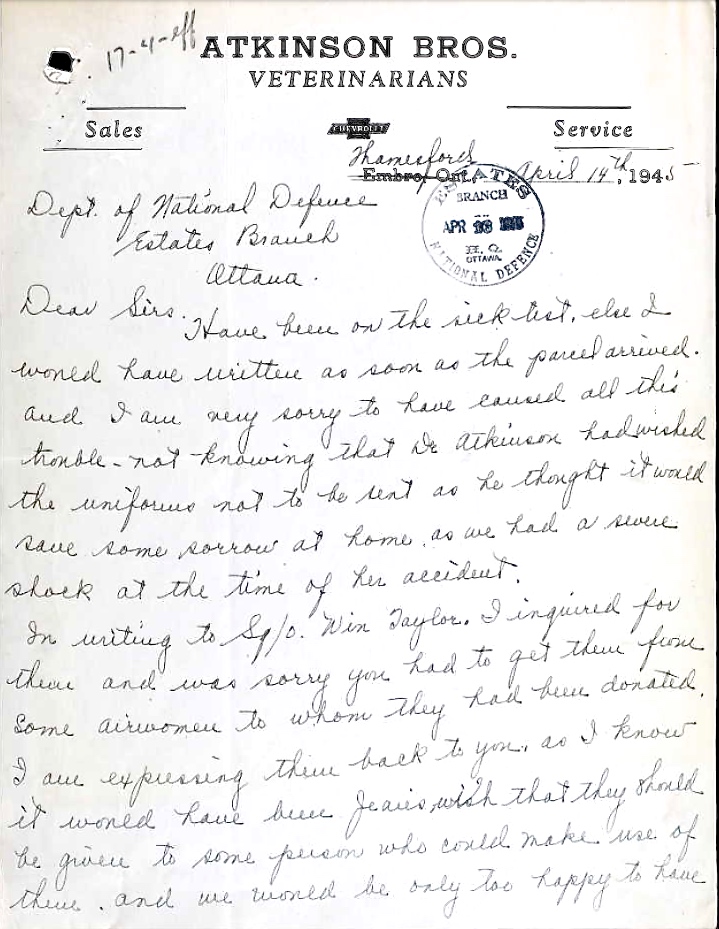 17-4-eff
ATKINSON BROS.
VETERINARIANS
Sales
CHEVROLET
Service
Thamesford
Embro, Ont., April 14th, 1945
ESTATES
BRANCH
APR 1945
H.Q.
OTTAWA
NATIONAL DEFENCE
Dept. of National Defence
Estates Branch
Ottawa.
Dear Sirs.
Have been on the sick list, else I
would have written as soon as the parcel arrived.
and I am very sorry to have caused all this
trouble - not knowing that Dr Atkinson had wished
the uniforms not to be sent as he thought it would
save some sorrow at home, as we had a severe
shock at the time of her accident.
In writing to Sg/o. Win Taylor. I inquired for
them and was sorry you had to get them from
some airwomen to whom they had been donated.
I am expressing them back to you, as I know
it would have been Jeaies wish that they should
be given to some person who could make use of
them. and we would be only too happy to have